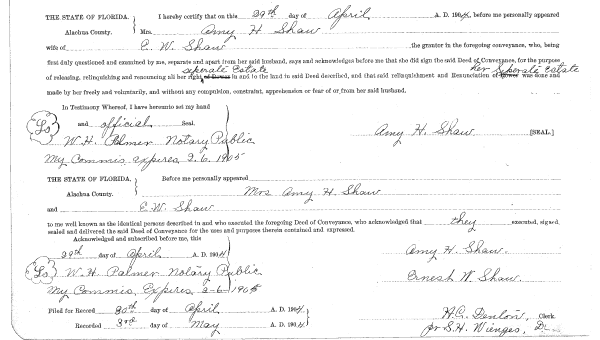 THE STATE OF FLORIDA. I hereby certify that on this 29th day of April A. D. 1904, before me personally appeared
Alachua County. Mrs. Amy H Shaw
wife of E. W. Shaw the grantor in the foregoing conveyance, who, being
first duly questioned and examined by me, separate and apart from her said husband, says and acknowledges before me that she did sign the said Deed of Conveyance, for the purpose
seperate Estate her Seperate Estate
of releasing, relinquishing and renouncing all her right of Dower in and to the land in said Deed described, and that said relinquishment and Renunciation of Dower was done and
made by her freely and voluntarily, and without any compulsion, constraint, apprehension or fear of or from her said husband.
In Testimony Whereof, I have hereunto set my hand
and official Seal.
Ls W. H. Palmer Notary Public Amy H. Shaw [SEAL.]
My Commis. expires 2-6-1905
THE STATE OF FLORIDA. Before me personally appeared
Alachua County. Mrs Amy H. Shaw
and E. W. Shaw
to me well known as the identical persons described in and who executed the foregoing Deed of Conveyance, who acknowledged that they executed, signed,
sealed and delivered the said Deed of Conveyance for the uses and purposes therein contained and expressed.
Acknowledged and subscribed before me, this
29th day of April A. D. 1904 Amy H. Shaw
Ls W. H. Palmer Notary Public Ernest W. Shaw.
My Commis. Expires 2-6-1905
Filed for Record 30th day of April A. D. 1904. H. C. Denton, Clerk.
Recorded 3rd day of May A. D. 1904 pr S. H. Wienges,